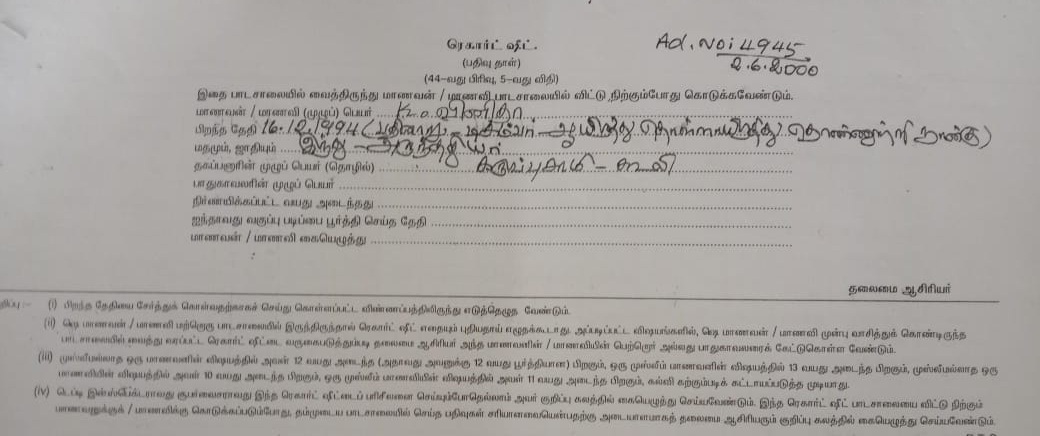 ரெகார்ட் ஷீட்.
Ad. No: 4945
(பதிவு தாள்)
2.6.2000
(44-வது பிரிவு, 5-வது விதி)
இதை பாடசாலையில் வைத்திருந்து மாணவன் / மாணவி பாடசாலையில் விட்டு நிற்கும்போது கொடுக்கவேண்டும்.
மாணவன் / மாணவி (முழுப்) பெயர்
பிறந்த தேதி 16.12.1994 (பதினாறு - டிசம்பர் - ஆயிரத்து தொள்ளாயிரத்து தொண்ணூற்றி நான்கு)
மதமும், ஜாதியும் இந்து - அருந்ததியர்
தகப்பனின் முழுப் பெயர் (தொழில்) கருப்புசாமி - கூலி
பாதுகாவலரின் முழுப் பெயர்
நிர்ணயிக்கப்பட்ட வயது அடைந்தது
ஐந்தாவது வகுப்பு படிப்பை பூர்த்தி செய்த தேதி
மாணவன் / மாணவி கையெழுத்து
தலைமை ஆசிரியர்
(i) பிறந்த தேதியை சேர்த்துக் கொள்வதற்காகச் செய்து கொள்ளப்பட்ட விண்ணப்பத்திலிருந்து எடுத்தெழுத வேண்டும்.
(ii) ஷெ மாணவன் / மாணவி மற்றொரு பாடசாலையில் இருந்திருந்தால் ரெகார்ட் ஷீட் எதையும் புதியதாய் எழுதக்கூடாது. அப்படிப்பட்ட விஷயங்களில், ஷெ மாணவன் / மாணவி முன்பு வாசித்துக் கொண்டிருந்த
பாடசாலையில் வைத்து வரப்பட்ட ரெகார்ட் ஷீட்டை வருகைபடுத்தும்படி தலைமை ஆசிரியர் அந்த மாணவனின் / மாணவியின் பெற்றோர் அல்லது பாதுகாவலரைக் கேட்டுகொள்ள வேண்டும்.
(iii) முஸ்லீமல்லாத ஒரு மாணவனின் விஷயத்தில் அவன் 12 வயது அடைந்த (அதாவது அவனுக்கு 12 வயது பூர்த்தியான) பிறகும், ஒரு முஸ்லீம் மாணவனின் விஷயத்தில் 13 வயது அடைந்த பிறகும், முஸ்லீமல்லாத ஒரு
மாணவியின் விஷயத்தில் அவள் 10 வயது அடைந்த பிறகும், ஒரு முஸ்லீம் மாணவியின் விஷயத்தில் அவள் 11 வயது அடைந்த பிறகும், கல்வி கற்கும்படிக் கட்டாயப்படுத்த முடியாது.
(iv) டெப்டி இன்ஸ்பெக்டராவது சூபர்வைசராவது இந்த ரெகார்ட் ஷீட்டைப் பரிசீலனை செய்யும்போதெல்லாம் அவர் குறிப்பு கலத்தில் கையெழுத்து செய்யவேண்டும். இந்த ரெகார்ட் ஷீட் பாடசாலையை விட்டு நிற்கும்
மாணவனுக்குக் / மாணவிக்கு கொடுக்கப்படும்போது, தம்முடைய பாடசாலையில் செய்த பதிவுகள் சரியானவையென்பதற்கு அடையாளமாகத் தலைமை ஆசிரியரும் குறிப்பு கலத்தில் கையெழுத்து செய்யவேண்டும்.